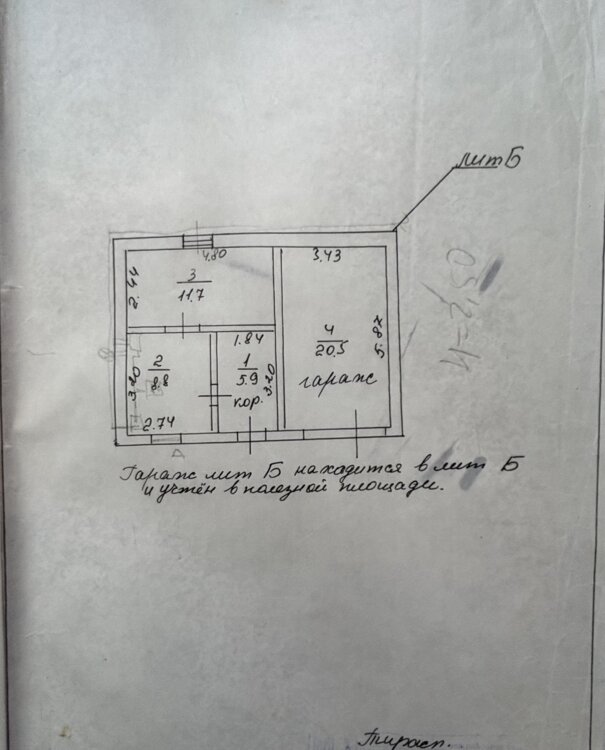 лит Б
4.80
3.43
2.44
3
11.7
1.84
4
20.5
5.87
2
8.8
3.20
1
5.9
3.20
гараж
кор.
2.74
Гараж лит Б находится в лит Б
и учтён в полезной площади.
Тирасп.